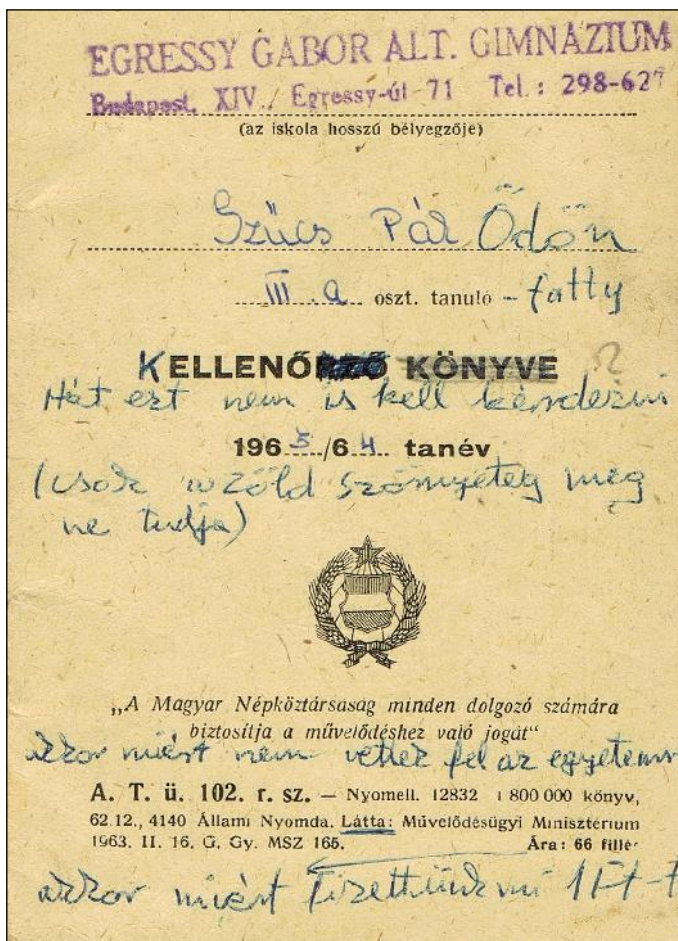 EGRESSY GÁBOR ÁLT. GIMNÁZIUM
Budapest, XIV., Egressy-út 71 Tel.: 298-627
(az iskola hosszú bélyegzője)
Szűcs Pál Ödön
III. a oszt. tanuló - fatty
KELLENŐRZŐ KÖNYVE ?
Hát ezt nem is kell kérdezni
1963/64 tanév
(csak a zöld szörnyeteg meg
ne tudja)
„A Magyar Népköztársaság minden dolgozó számára
biztosítja a művelődéshez való jogát“
akkor miért nem vettek fel az egyetemre
A. T. ü. 102. r. sz. — Nyomell. 12832 1 800 000 könyv,
62.12., 4140 Állami Nyomda. Látta: Művelődésügyi Minisztérium
1963. II. 16. G. Gy. MSZ 165. Ára: 66 fillér
akkor miért fizettünk mi 1 Ft-t